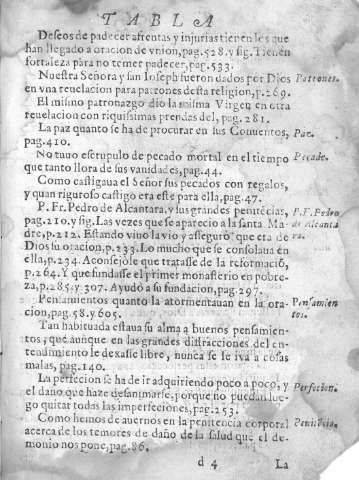 TABLA
Deseos de padecer afrentas y injurias tienen los que
han llegado a oracion de vnion, pag.528. y sig. Tienen
fortaleza para no temer padecer, pag.533.
Nuestra Señora y san Ioseph fueron dados por Dios Patrones.
en vna reuelacion para patrones desta religion, p.269.
El mismo patronazgo dio la misma Virgen en otra
reuelacion con riquissimas prendas del, pag.281.
La paz quanto se ha de procurar en sus Conuentos, Paz.
pag.410.
No tuuo escrupulo de pecado mortal en el tiempo Pecado.
que tanto llora de sus vanidades, pag.44.
Como castigaua el Señor sus pecados con regalos,
y quan riguroso castigo era este para ella, pag.47.
P. Fr. Pedro de Alcantara, y sus grandes penitēcias, P. F. Pedro
pag.210. y sig. Las vezes que se aparecio a la santa Ma- de Alcanta
dre, p.212. Estando viuo la vio y asseguró que era de ra.
Dios su oracion, p.233. Lo mucho que se consolaua en
ella, p.234. Aconsejole que tratasse de la reformaciō,
p.264. Y que fundasse el primer monasterio en pobre-
za, p.285. y 307. Ayudó a su fundacion, pag.297.
Pensamientos quanto la atormentauan en la ora- Pensamien
cion, pag.58. y 605. tos.
Tan habituada estaua su alma a buenos pensamien-
tos, que aunque en las grandes distracciones del en-
tendimiento le dexasse libre, nunca se le iva a cosas
malas, pag.140.
La perfecion se ha de ir adquiriendo poco a poco, y Perfecion.
el daño que haze desanimarse, porque no puedan lue-
go quitar todas las imperfeciones, pag.253.
Como hemos de auernos en la penitencia corporal Penitēcia.
acerca de los temores de daño de la salud que el de-
monio nos pone, pag.86.
d 4 La